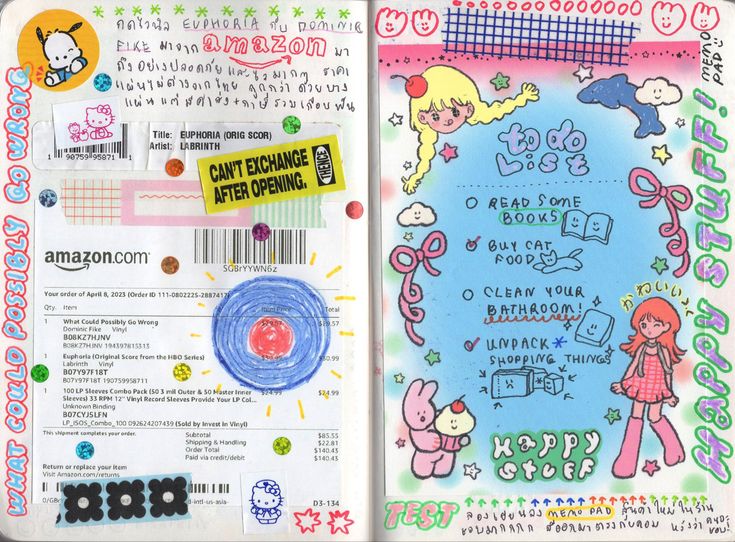 กดไวนิล EUPHORIA กับ DOMINIC
FIKE มาจาก amazon มา
ถึงอย่างปลอดภัย และไวมากๆ ราคา
WHAT COULD POSSIBLY GO WRONG
1 90759 95871 1
Title: EUPHORIA (ORIG SCOR)
Artist: LABRINTH
CAN'T EXCHANGE
AFTER OPENING.
amazon.com
SGBrYYWN6z
Your order of April 8, 2023 (Order ID 111-0802225-2887417)
Qty. Item
Item Price
1 What Could Possibly Go Wrong
Dominic Fike Vinyl
B08KZ7HJNV
B08KZ7HJNV 194397815313
1 Euphoria (Original Score from the HBO Series)
Labrinth Vinyl
B07Y97F18T
B07Y97F18T 190759958711
1 100 LP Sleeves Combo Pack (50 3 mil Outer & 50 Master Inner
Sleeves) 33 RPM 12" Vinyl Record Sleeves Provide Your LP Col...
Unknown Binding
B07CYJSLFN
LP_ISOS_Combo_100 092624207439 (Sold by Invest In Vinyl)
$24.99 $24.99
This shipment completes your order.
Subtotal $85.55
Shipping & Handling $22.81
Order Total $140.43
Paid via credit/debit $140.43
Return or replace your item
Visit Amazon.com/returns
D3-134
MEMO
PAD
to do
LIST
READ SOME
BOOKS
BUY CAT
FOOD
CLEAN YOUR
BATHROOM!
UNPACK*
SHOPPING THINGS
かわいいよ
HAPPY
STUFF
HAPPY STUFF!
TEST
ลองเขียนลง MEMO PAD สินค้าใหม่ในร้าน